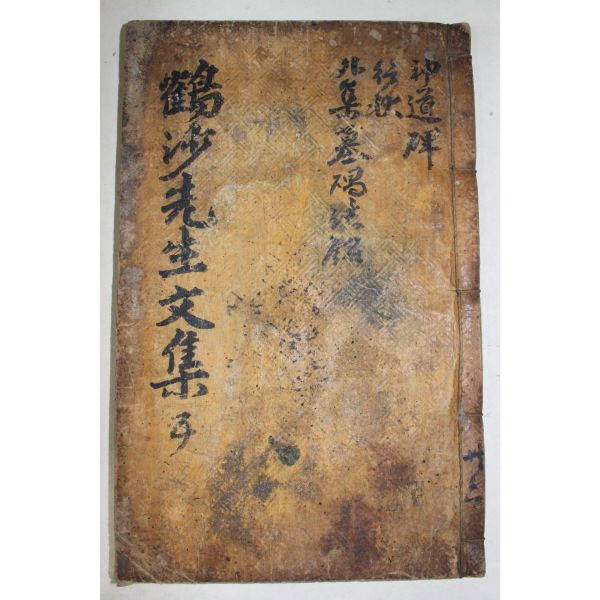 神道碑
行狀
外集墓碣誌銘
鶴沙先生文集